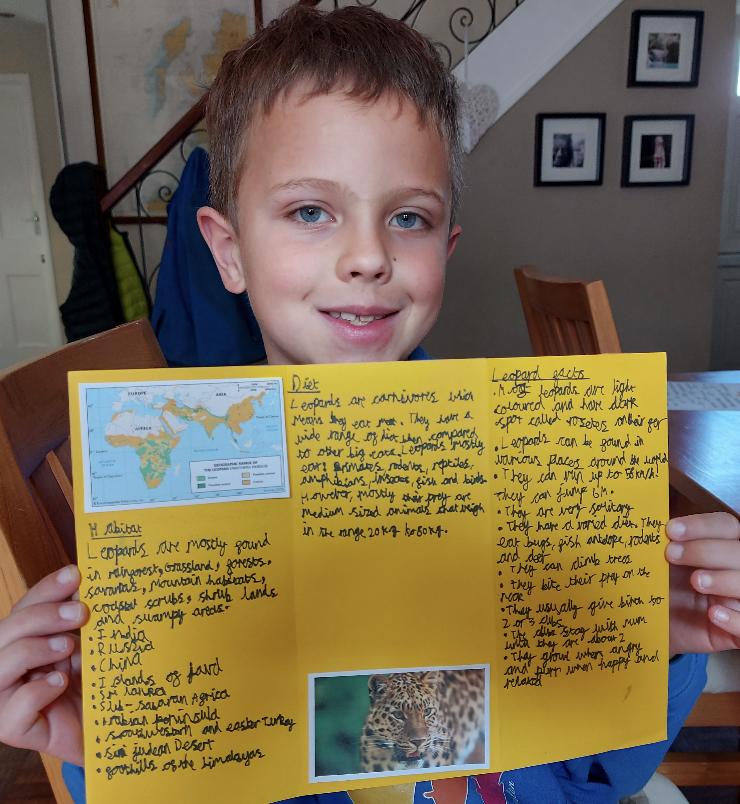 EUROPE
ASIA
AFRICA
GEOGRAPHIC RANGE OF
Habitat
Leopards are mostly found
in rainforest, Grassland, forests,
savanas, mountain habitats,
coastal scrubs, shrub lands
and swampy areas.
• India
• Russia
• China
• Islands of Java
• Sri lanka
• Sub-saharan Africa
• Arabian peninsula
• southwestern and easter Turkey
• Sini judean Desert
• foothills of the himalayas
Diet
Leopards are carnivores which
means they eat meat. They have a
wide range of diet when compared
to other big cats. Leopards mostly
eat: primates, rodents, reptiles,
amphibians, insects, fish and birds.
However, mostly their prey are
medium sized animals that weigh
in the range 20kg to 80kg.
Leopard facts
• Most leopards are light
coloured and have dark
spot called rosetes on their fur
• Leopards can be found in
various places around the world
• They can run up to 58km/h!
they can jump 6M.
• They are very solitary
• They have a varied diet. They
eat bugs, fish antelope, rodents
and deer
• They can climb trees
• they bite their prey on the
neck
• They usually give birth to
2 or 3 cubs
• The cubs stay with mum
until they are about 2
• They growl when angry
and purr when happy and
relaxed